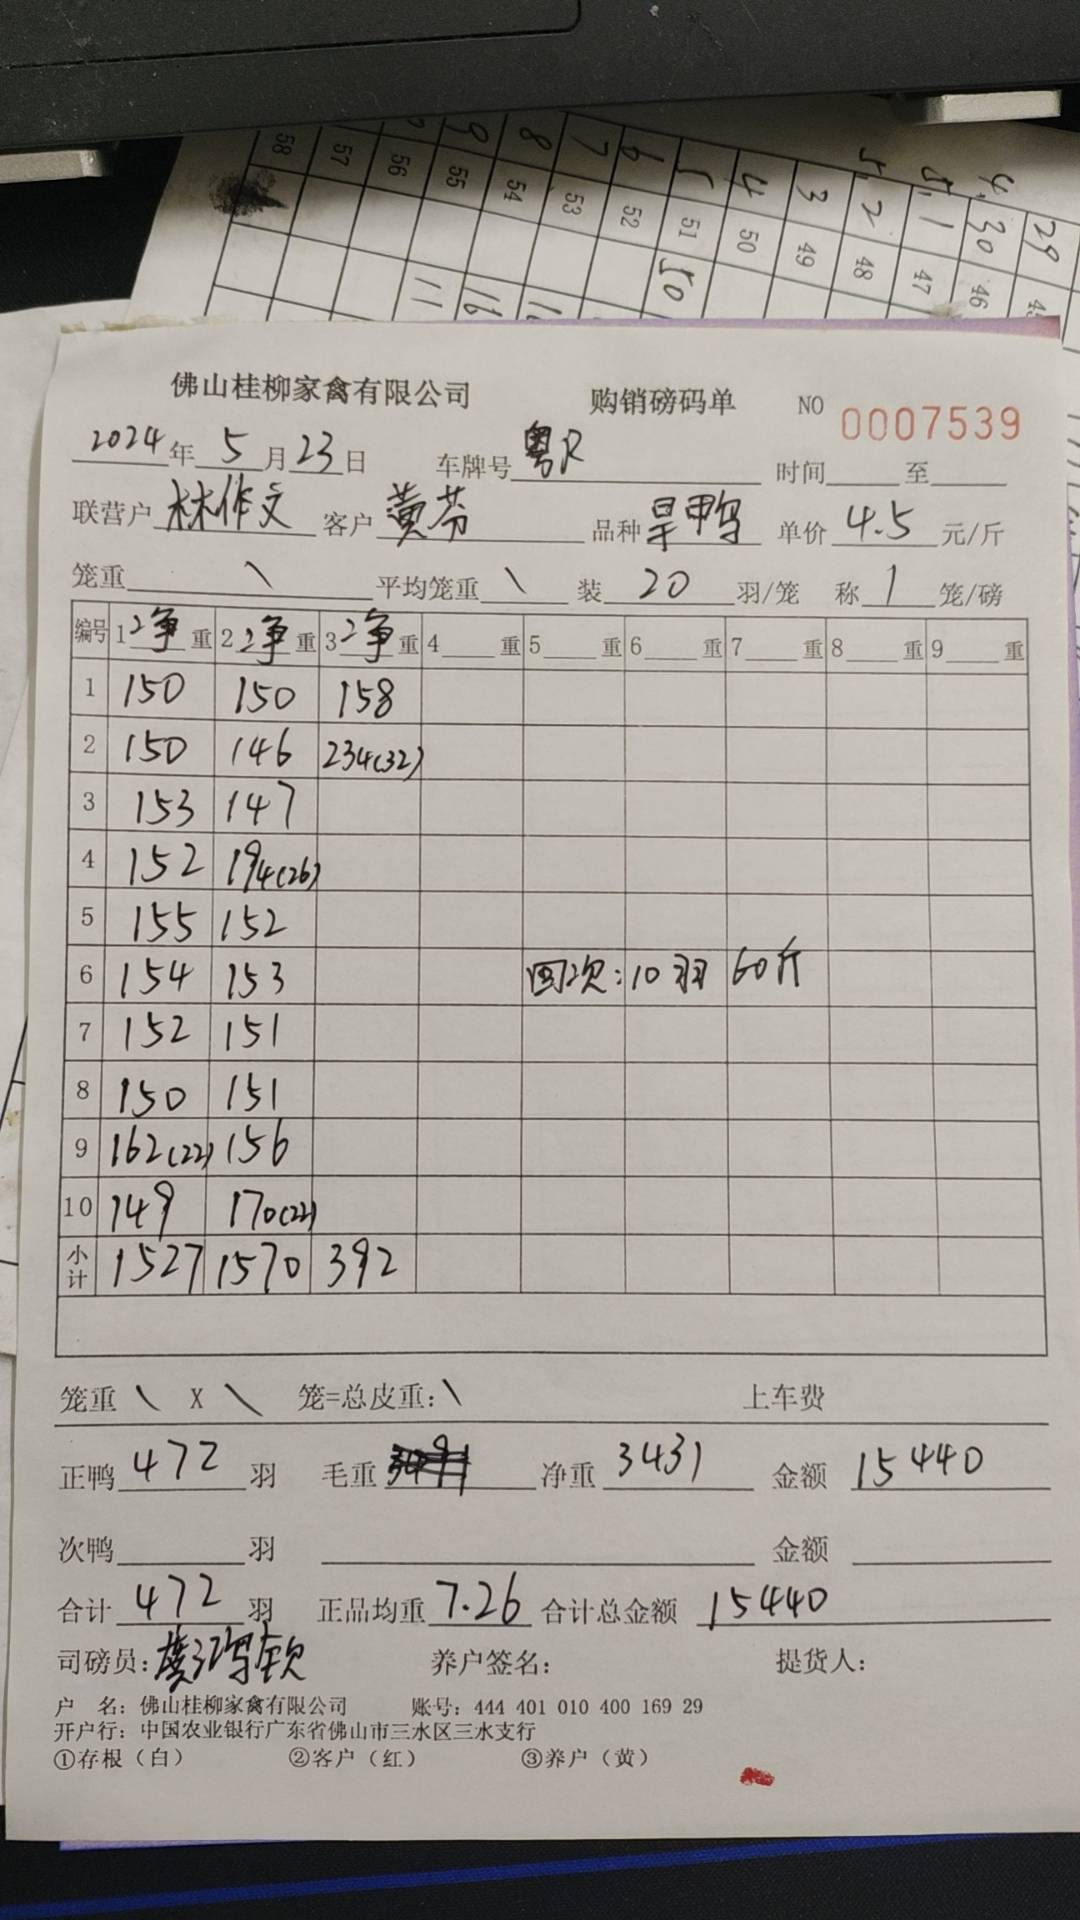 58 57 56 55 54 53 52 51 50 49 48 47 46
9 8 7 6 5 4 3 2 1 30 29
11 16 50
佛山桂柳家禽有限公司 购销磅码单 NO 0007539
2024年5月23日 车牌号粤R 时间 至
联营户林作文 客户黄芬 品种旱鸭 单价4.5元/斤
笼重\ 平均笼重\ 装20羽/笼 称1笼/磅
编号 1净重 2净重 3净重 4 重 5 重 6 重 7 重 8 重 9 重
1 150 150 158
2 150 146 234(32)
3 153 147
4 152 194(26)
5 155 152
6 154 153 回次:10羽 60斤
7 152 151
8 150 151
9 162(22) 156
10 149 170(22)
小计 1527 1570 392
笼重\ X \ 笼=总皮重:\ 上车费
正鸭472羽 毛重 净重3431 金额15440
次鸭 羽 金额
合计472羽 正品均重7.26 合计总金额15440
司磅员: 养户签名: 提货人:
户 名: 佛山桂柳家禽有限公司 账号: 444 401 010 400 169 29
开户行: 中国农业银行广东省佛山市三水区三水支行
①存根(白) ②客户(红) ③养户(黄)